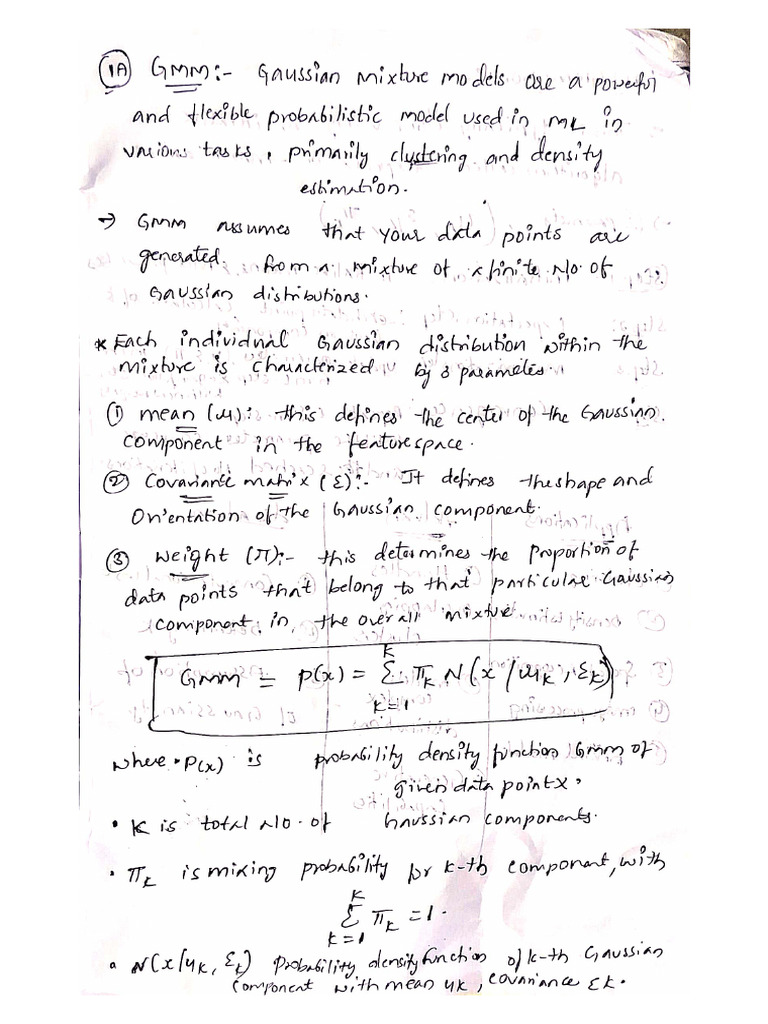 1A GMM:- Gaussian mixture models are a powerful
and flexible probabilistic model used in ML in
various tasks, primarily clustering and density
estimation.
→ GMM assumes that your data points are
generated from a mixture of a finite No. of
Gaussian distributions.
* Each individual Gaussian distribution within the
mixture is characterized by 3 parameters.
① mean (μ): this defines the center of the Gaussian.
component in the feature space.
② Covariance matrix (Σ):- It defines the shape and
Orientation of the Gaussian component.
③ weight (π):- this determines the proportion of
data points that belong to that particular Gaussian
component in the overall mixture
GMM = P(x) = K Σ k=1 πk N(x/μk, Σk)
where • P(x) is probability density function GMM of
given data point x.
• K is total No. of Gaussian components.
• πk is mixing probability for k-th component, with
K Σ k=1 πk = 1.
• N(x/μk, Σk) probability density function of k-th Gaussian
component with mean μk, covariance Σk.